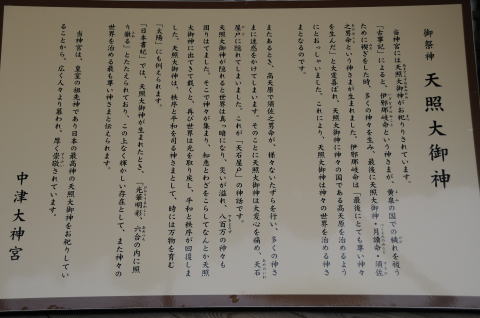 御祭神 天照大御神
当神宮には天照大御神がお祀りされています。
「古事記」によると、伊邪那岐命という神さまが、黄泉の国での穢れを祓う
ために禊ぎをした時、多くの神々を生み、最後に天照大御神・月讀命・須佐
之男命という神さまが生まれました。伊邪那岐命は「最後にとても尊い神々
を生んだ」と大変喜ばれ、天照大御神に神々の国である高天原を治めるよう
にとおっしゃいました。これにより、天照大御神は神々の世界を治める神さ
まとなるのです。
またあるとき、高天原で須佐之男命が、様々ないたずらを行い、多くの神さ
まに迷惑をかけてしまいます。そのことに天照大御神は大変心を痛め、天石
屋戸に隠れてしまいました。これが「天石屋戸」の神話です。
天照大御神が隠れると世界は真っ暗になり、災いが溢れ、八百万の神々も
困りはてました。そこで神々が集まり、知恵とわざをこらしてなんとか天照
大御神に出てきて戴くと、再び世界は光を取り戻し、平和と秩序が回復しま
した。天照大御神は、秩序と平和を司る神さまとして、時には万物を育む
「太陽」にも例えられます。
「日本書紀」では、天照大御神が生まれたとき、「光華明彩、六合の内に照
り徹る」とたたえられており、この上なく輝かしい存在として、また神々の
世界を治める最も尊い神さまと伝えられます。
当神宮は、皇室の祖先神であり日本の最高神の天照大御神をお祀りしてい
ることから、広く人々より慕われ、厚く崇敬されています。
中津大神宮